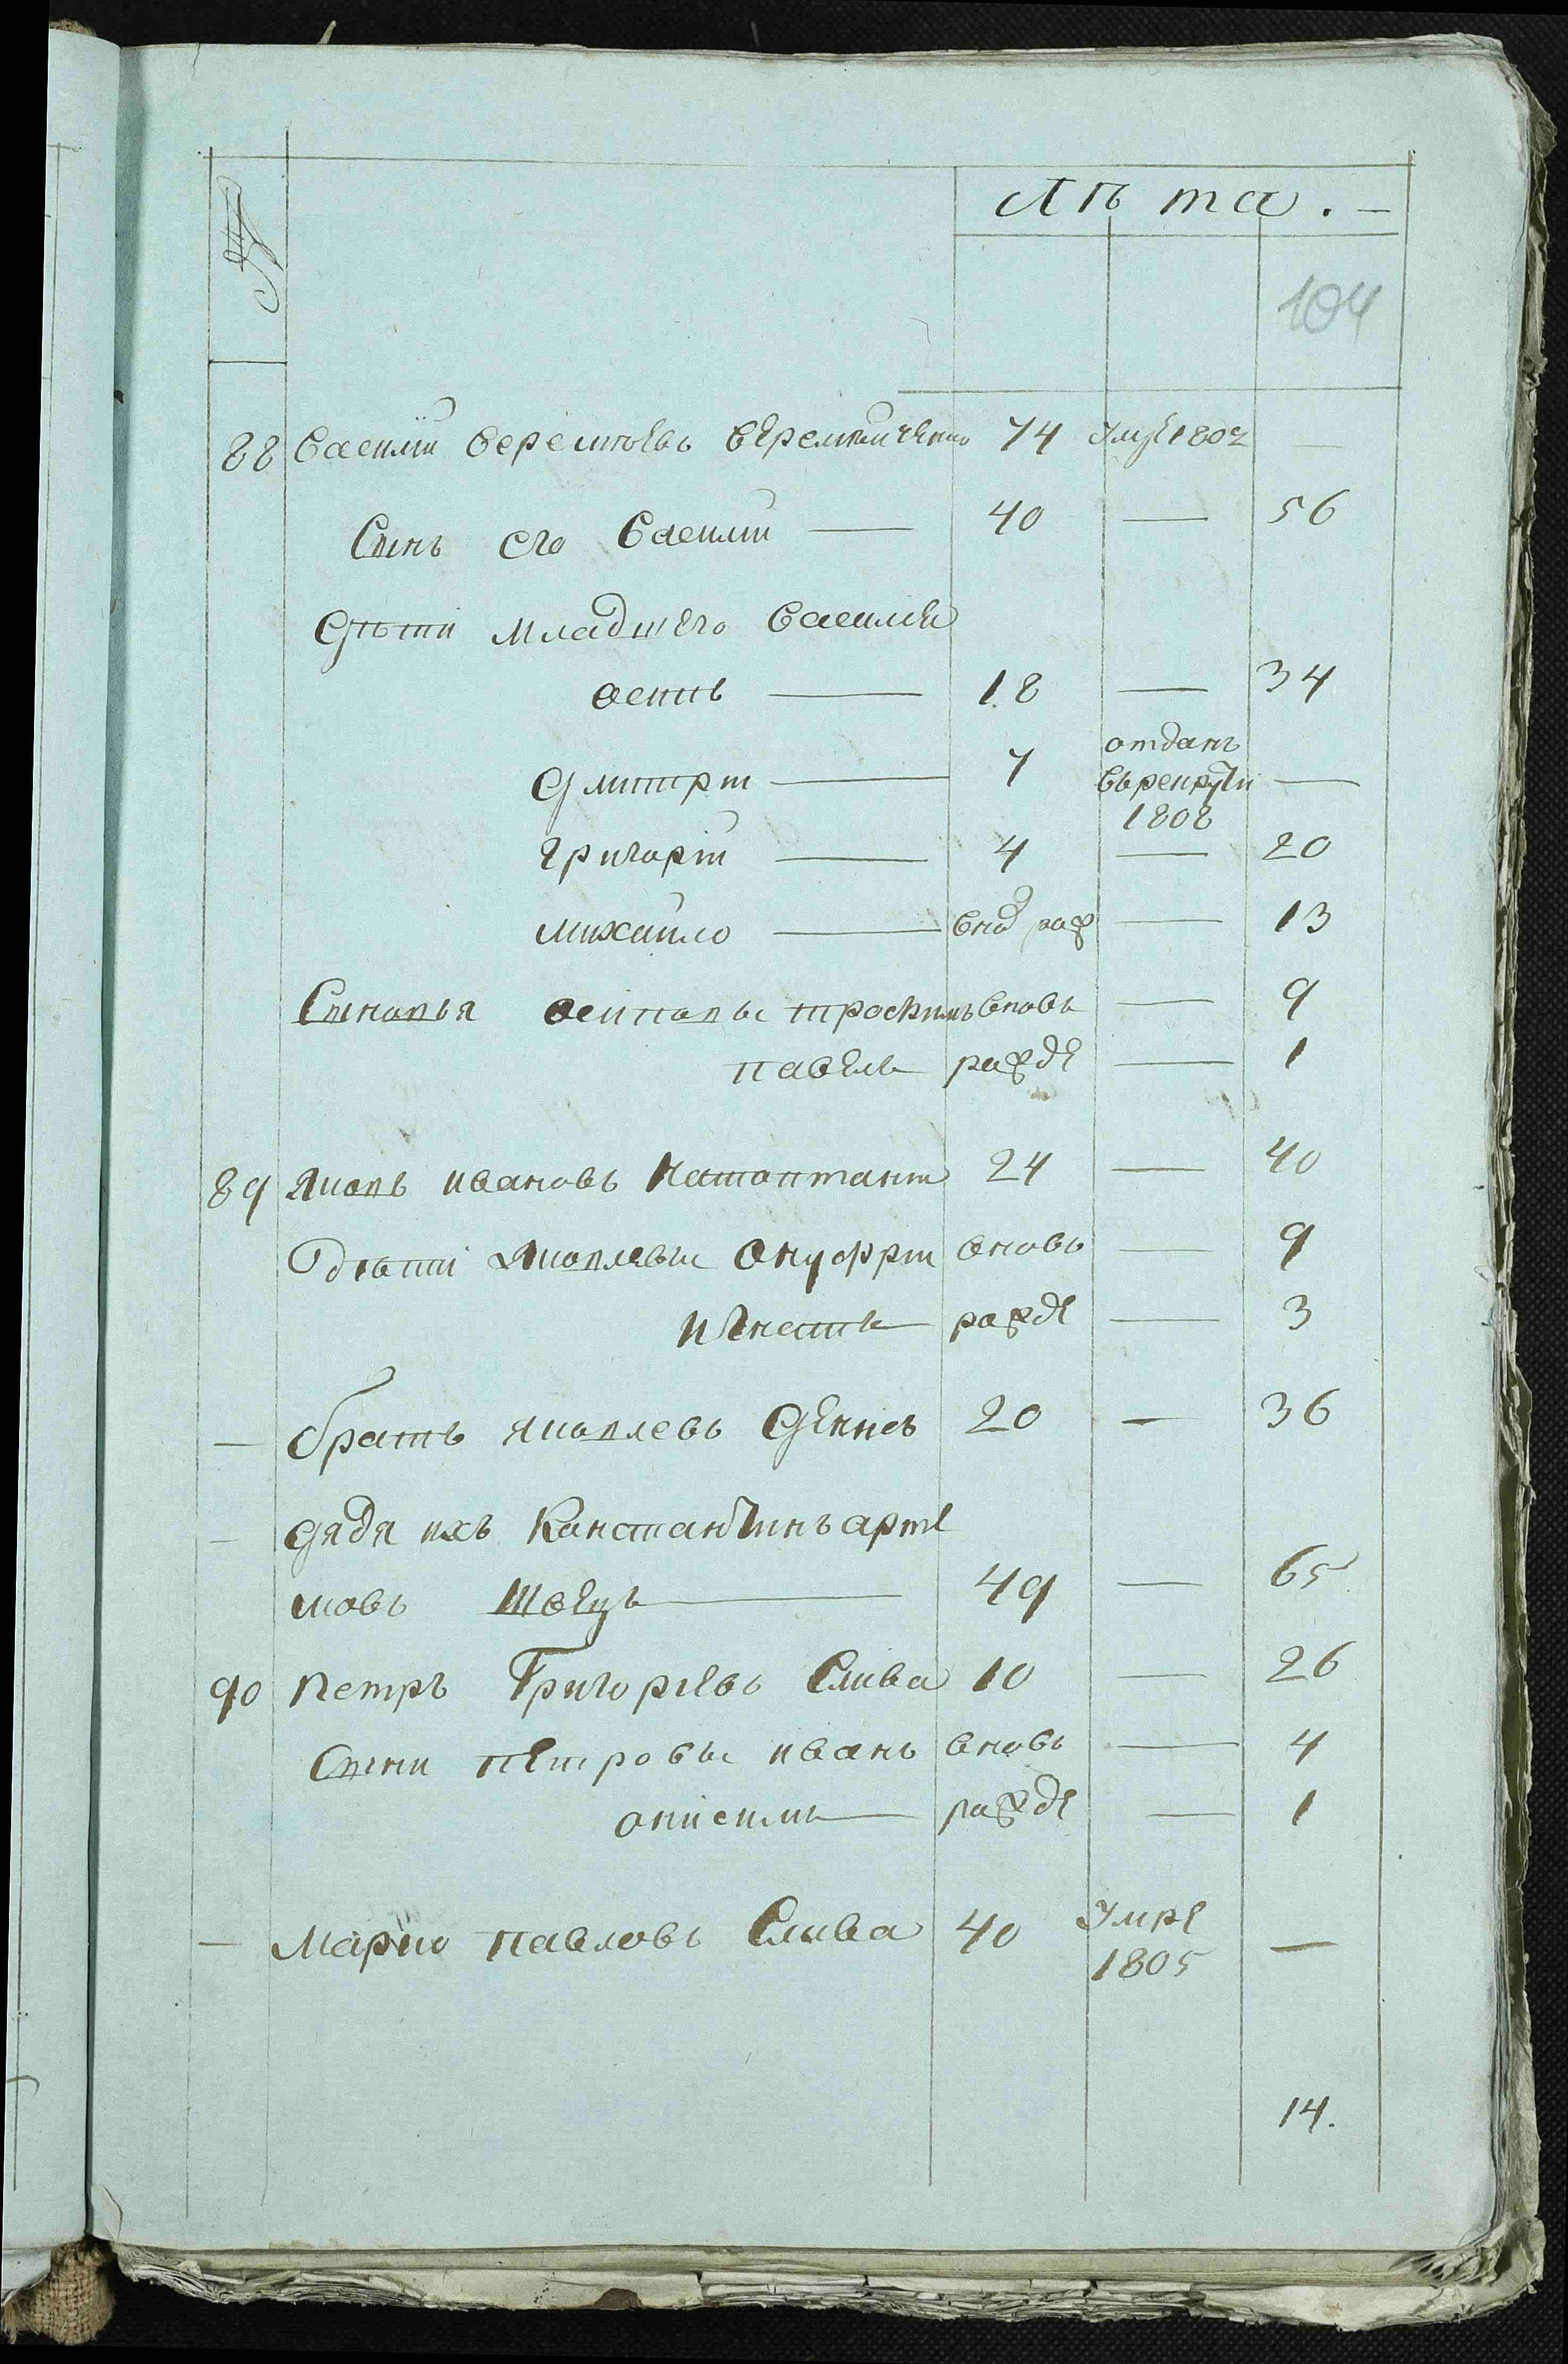 №
Лѣта. —
104
88 Василий Веремѣевъ Веремѣиченко 74 умре 1802 —
Сынъ его Василий — 40 — 56
Дѣти младшего Василия
осипъ — 18 — 34
Дмитрий — 7 отданъ въ рекрути 1808 —
Григорий — 4 — 20
михайло — внов рож — 13
Сыновья осиповы трофимъ вновь — 9
павелъ рожде — 1
89 Яковъ ивановъ Нетоптаний 24 — 40
дѣти Яковлевы Онуфрий вновь — 9
игнатъ — рожде — 3
— братъ яковлевъ Денисъ 20 — 36
— дядя ихъ Константинъ арте
мовъ Швецъ — 49 — 65
90 Петръ Григориевъ Слива 10 — 26
Сыни петровы иванъ вновь — 4
онисимъ — рожде — 1
— Марко павловъ Слива 40 умре 1805 —
14.